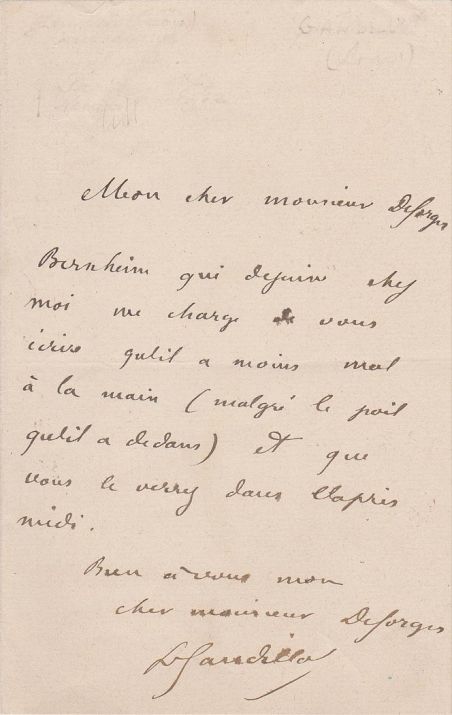 GANDILLOT
Mon cher monsieur Desorges
Bernheim qui dejeune chez
moi me charge de vous
écrire qu'il a moins mal
à la main (malgré le poil
qu'il a dedans) et que
vous le verrez dans l'après
midi.
Bien à vous mon
cher monsieur Desorges
LGandillot